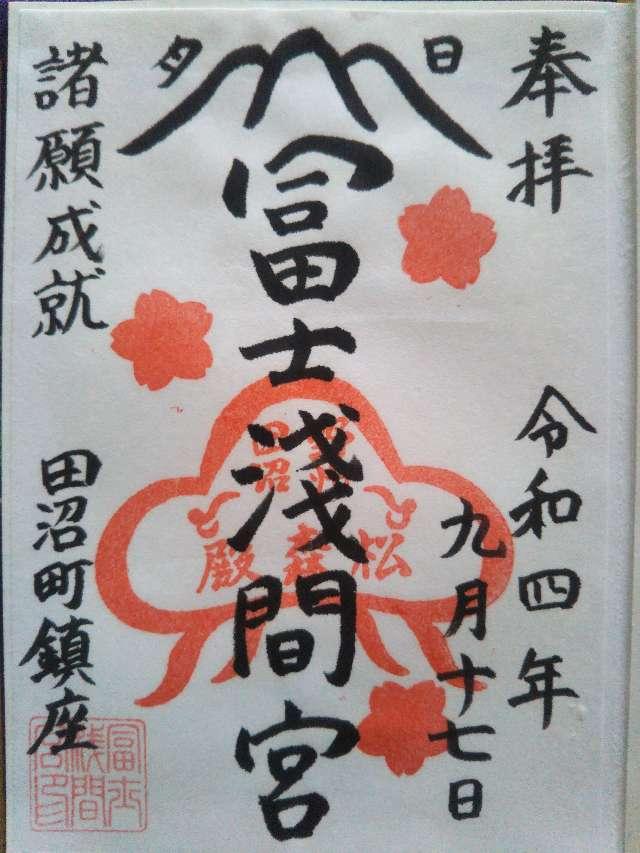 奉拝
令和四年
九月十七日
日
夕
冨士淺間宮
野州
田沼
松森殿
諸願成就
田沼町鎮座
冨士
浅間
宮印